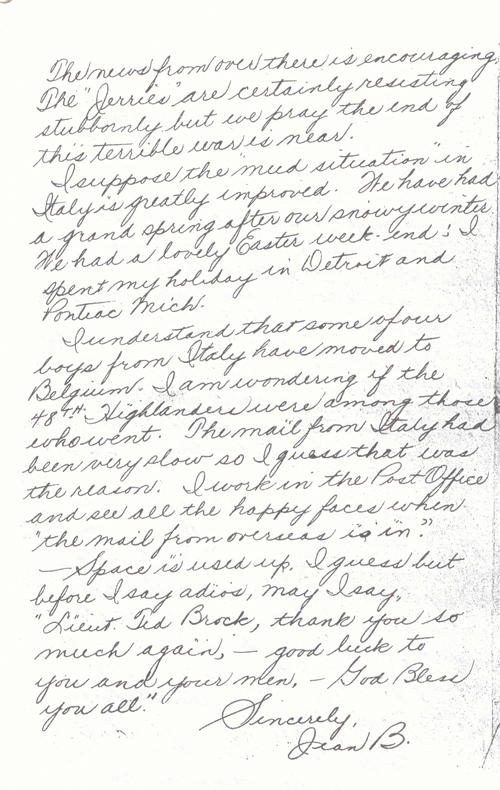 The news from over there is encouraging.
The "Jerries" are certainly resisting
stubbornly but we pray the end of
this terrible war is near.
I suppose the "mud situation" in
Italy is greatly improved. We have had
a grand spring after our snowy winter
We had a lovely Easter week-end; I
spent my holiday in Detroit and
Pontiac Mich.
I understand that some of our
boys from Italy have moved to
Belgium. I am wondering if the
48TH Highlanders were among those
who went. The mail from Italy had
been very slow so I guess that was
the reason. I work in the Post Office
and see all the happy faces when
"the mail from overseas is in."
— Space is used up. I guess but
before I say adios, may I say,
"Lieut. Ted Brock, thank you so
much again, — good luck to
you and your men, — God Bless
you all."
Sincerely,
Jean B.